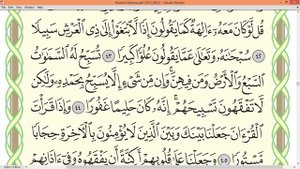 Mushaf Madina.pdf (SECURED) - Adobe Reader
File Edit View Window Help
قُل لَّوْ كَانَ مَعَهُۥٓ ءَالِهَةٌ كَمَا يَقُولُونَ إِذًا لَّٱبْتَغَوْا۟ إِلَىٰ ذِى ٱلْعَرْشِ سَبِيلًا
٤٢ سُبْحَٰنَهُۥ وَتَعَٰلَىٰ عَمَّا يَقُولُونَ عُلُوًّا كَبِيرًا ٤٣ تُسَبِّحُ لَهُ ٱلسَّمَٰوَٰتُ
ٱلسَّبْعُ وَٱلْأَرْضُ وَمَن فِيهِنَّ وَإِن مِّن شَىْءٍ إِلَّا يُسَبِّحُ بِحَمْدِهِۦ وَلَٰكِن
لَّا تَفْقَهُونَ تَسْبِيحَهُمْ إِنَّهُۥ كَانَ حَلِيمًا غَفُورًا ٤٤ وَإِذَا قَرَأْتَ
ٱلْقُرْءَانَ جَعَلْنَا بَيْنَكَ وَبَيْنَ ٱلَّذِينَ لَا يُؤْمِنُونَ بِٱلْءَاخِرَةِ حِجَابًا
مَّسْتُورًا ٤٥ وَجَعَلْنَا عَلَىٰ قُلُوبِهِمْ أَكِنَّةً أَن يَفْقَهُوهُ وَفِىٓ ءَاذَانِهِمْ